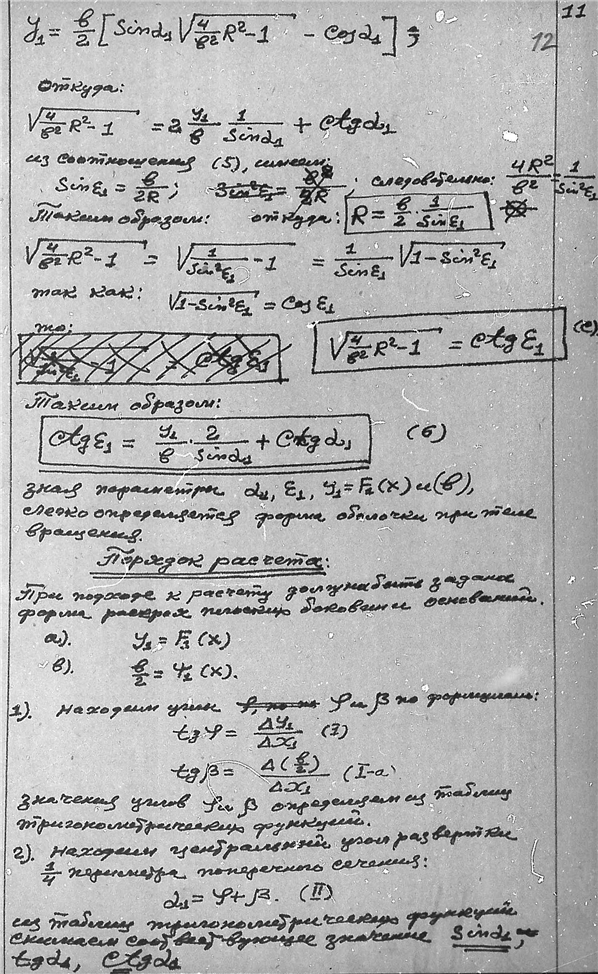 11
12
y₁ = в/2 [Sinα₁ √(4/в² R² - 1) - Cosα₁];
откуда:
√(4/в² R² - 1) = 2 y₁/в · 1/Sinα₁ + Ctgα₁
из соотношения (5), имеем:
Sinε₁ = в/2R; Sin²ε₁ = в²/ R ; следовательно: 4R²/в² = 1/Sin²ε₁
Таким образом: откуда: R = в/2 · 1/Sinε₁
√(4/в² R² - 1) = √(1/Sin²ε₁ - 1) = 1/Sinε₁ √(1-Sin²ε₁)
так как: √(1-Sin²ε₁) = Cosε₁
то:
= Ctgε₁ √(4/в² R² - 1) = Ctgε₁ (с)
Таким образом:
Ctgε₁ = y₁/в · 2/Sinα₁ + Ctgα₁ (6)
зная параметры α₁, ε₁, y₁ = F₁(x) и (в),
легко определяется форма оболочки при теле
вращения.
Порядок расчета:
При подходе к расчету должна быть задана
форма раскроя плоских боковин и оснований.
а). y₁ = F₁(x)
в). в/2 = Ψ₁(x).
1). Находим углы φ и β по формулам:
tgφ = Δy₁/Δx₁ (I)
tgβ = Δ(в/2)/Δx₁ (I-а)
значения углов φ и β определяем из таблиц
тригонометрических функций.
2). Находим центральный угол развертки
1/4 периметра поперечного сечения:
α₁ = φ + β. (II)
из таблиц тригонометрических функций
снимаем соответствующее значение Sinα₁,
tgα₁, Ctgα₁